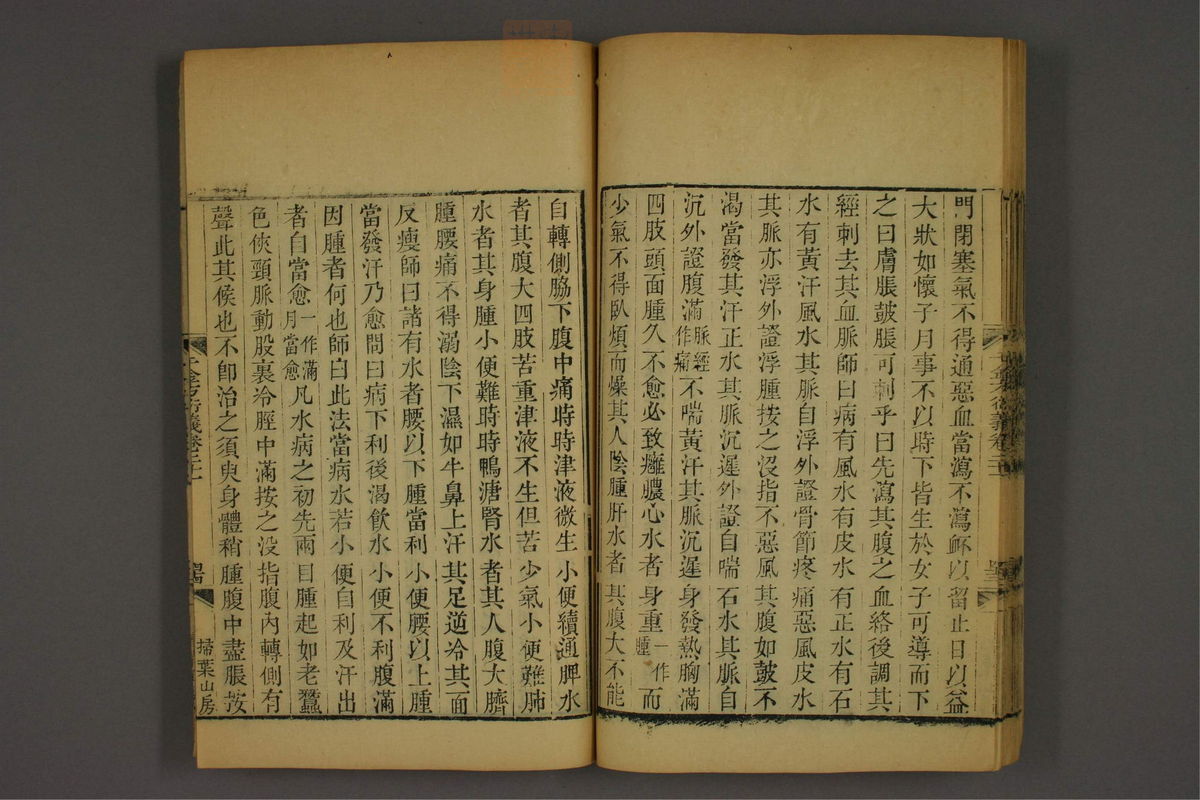 門閉塞氣不得通惡血當瀉不瀉衃以留止日以益
大狀如懷子月事不以時下皆生於女子可導而下
之曰膚脹鼓脹可刺乎曰先瀉其腹之血絡後調其
經刺去其血脈師曰病有風水有皮水有正水有石
水有黃汗風水其脈自浮外證骨節疼痛惡風皮水
其脈亦浮外證浮腫按之沒指不惡風其腹如鼓不
渴當發其汗正水其脈沉遲外證自喘石水其脈自
沉外證腹滿脈經作痛不喘黃汗其脈沉遲身發熱胸滿
四肢頭面腫久不愈必致癰膿心水者身重一作腫而
少氣不得臥煩而燥其人陰腫肝水者其腹大不能
自轉側脇下腹中痛時時津液微生小便續通脾水
者其腹大四肢苦重津液不生但苦少氣小便難肺
水者其身腫小便難時時鴨溏腎水者其人腹大臍
腫腰痛不得溺陰下濕如牛鼻上汗其足逆冷其面
反瘦師曰諸有水者腰以下腫當利小便腰以上腫
當發汗乃愈問曰病下利後渴飲水小便不利腹滿
因腫者何也師曰此法當病水若小便自利及汗出
者自當愈一作滿月當愈凡水病之初先兩目腫起如老蠶
色俠頸脈動股裏冷脛中滿按之沒指腹內轉側有
聲此其候也不卽治之須臾身體稍腫腹中盡脹按
千金方衍義卷二十一
掃葉山房